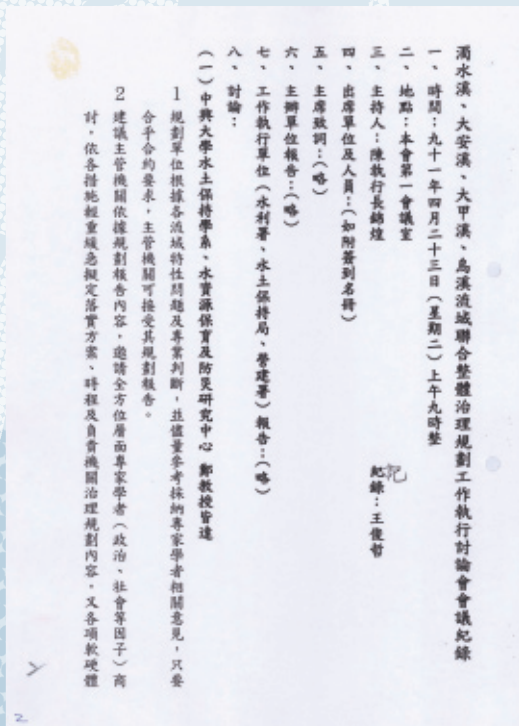 濁水溪、大安溪、大甲溪、烏溪流域聯合整體治理規劃工作執行討論會會議紀錄
一、時間：九十一年四月二十三日（星期二）上午九時整
二、地點：本會第一會議室
三、主持人：陳執行長錦煌
紀錄：王俊哲
記
四、出席單位及人員：（如附簽到名冊）
五、主席致詞：（略）
六、主辦單位報告：（略）
七、工作執行單位（水利署、水土保持局、營建署）報告：（略）
八、討論：
（一）中興大學水土保持學系、水資源保育及防災研究中心　鄭教授皆達
1 規劃單位根據各流域特性問題及專業判斷，並儘量參考採納專家學者相關意見，只要
合乎合約要求，主管機關可接受其規劃報告。
2 建議主管機關依據規劃報告內容，邀請全方位層面專家學者（政治、社會等因子）商
討，依各措施輕重緩急擬定落實方案、時程及負責機關治理規劃內容。又各項軟硬體
2